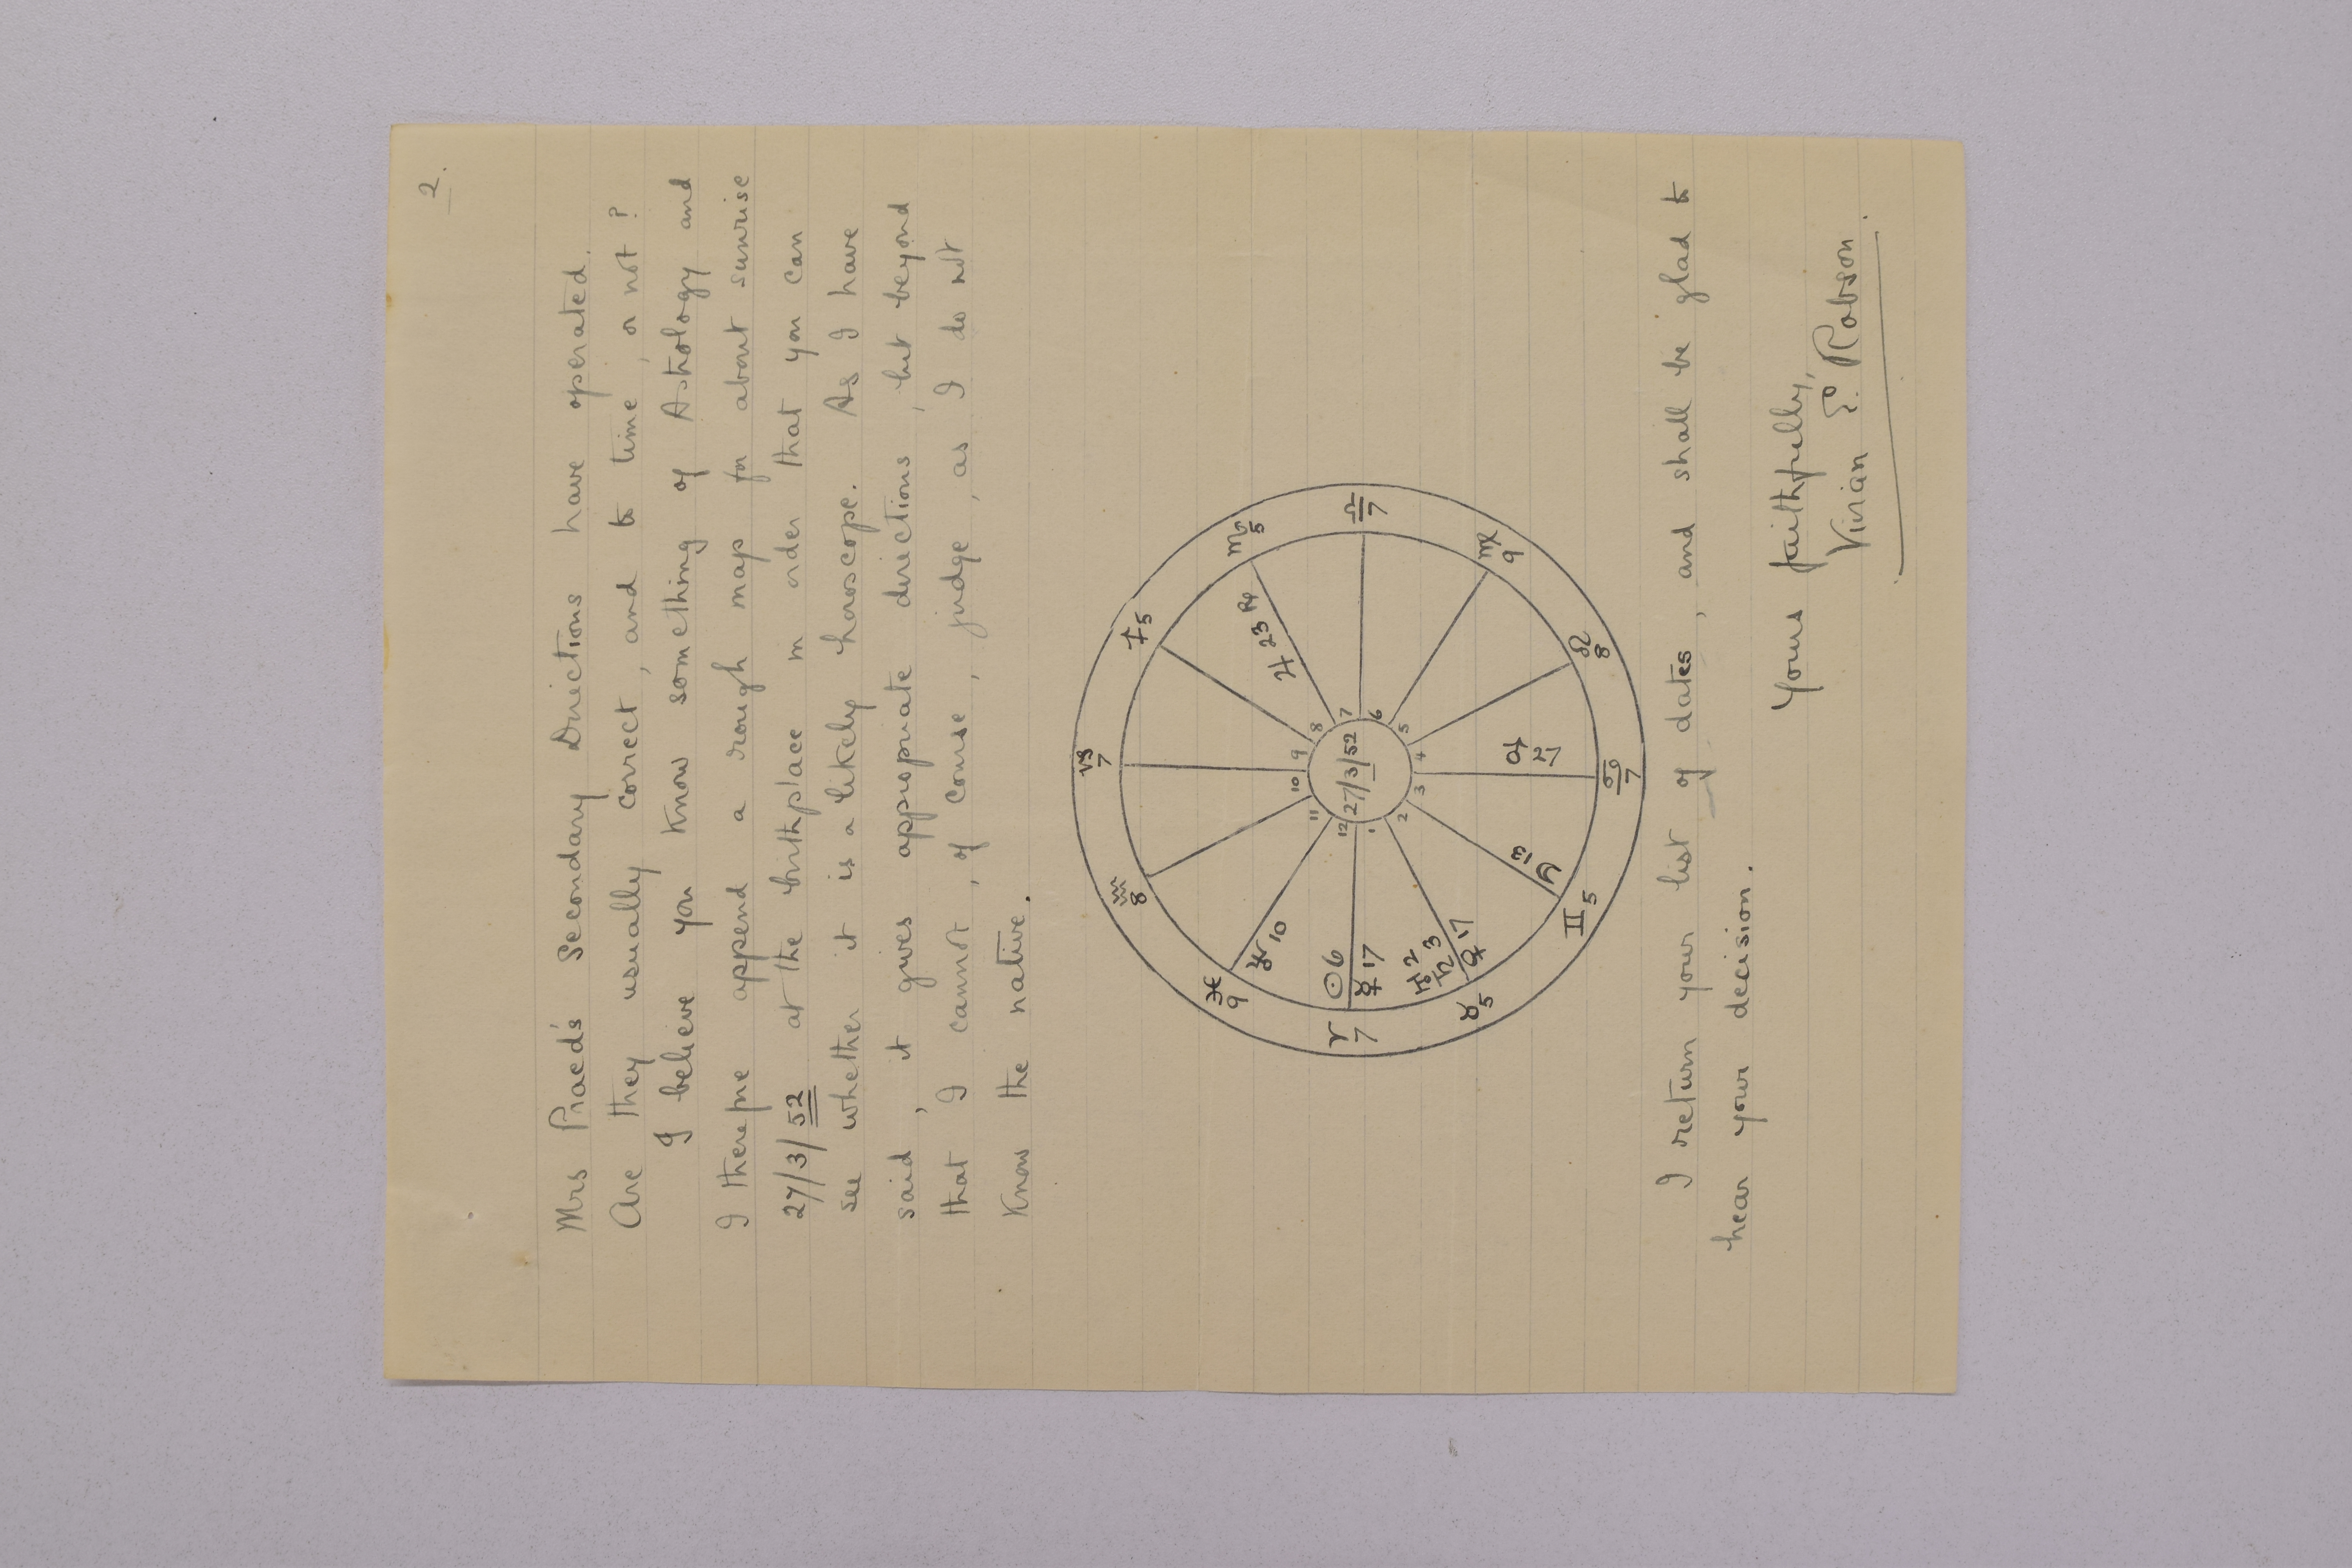 2.
Mrs Praed's Secondary Directions have operated.
Are they usually correct, and to time, or not?
I believe you know something of Astrology and
I therefore append a rough map for about sunrise
27/3/52 at the birthplace in order that you can
see whether it is a likely horoscope. As I have
said, it gives appropriate directions, but beyond
that I cannot, of course, judge, as I do not
know the native.
♑ 7
♐ 5
♏ 5
♎ 7
♍ 9
♌ 8
♋ 7
♊ 5
♉ 5
♈ 7
♓ 9
♒ 8
♃ 23 ℞
♂ 27
☽ 13
♀ 17
♄ 3
♅ 2
☿ 17
☉ 6
♆ 10
10 9 8 7 6 5 4 3 2 1 12 11
27/3/52
I return your list of dates, and shall be glad to
hear your decision.
Yours faithfully,
Vivian E. Robson.